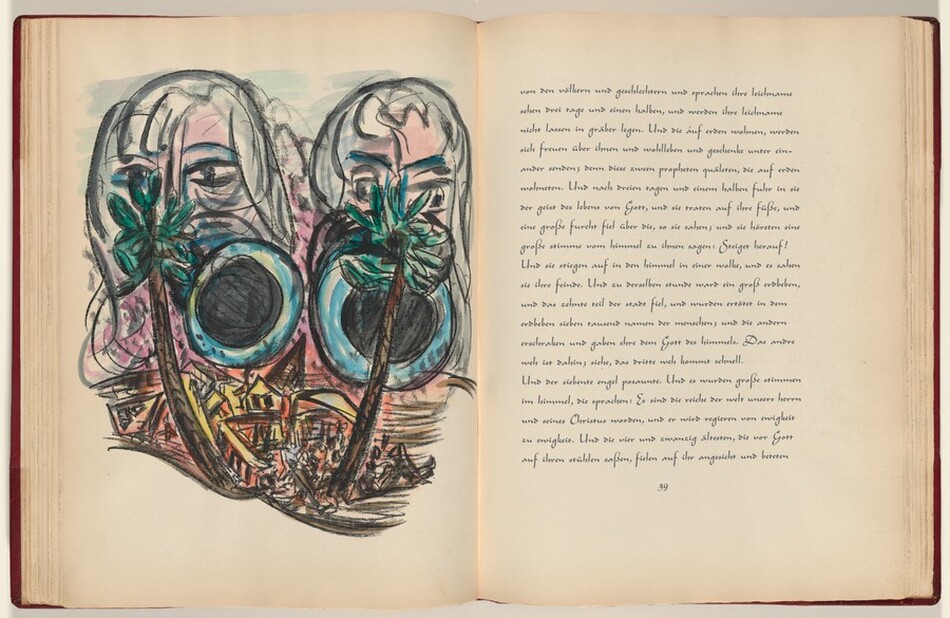 von den völkern und geschlechtern und sprachen ihre leichname
sehen drei tage und einen halben, und werden ihre leichname
nicht lassen in gräber legen. Und die auf erden wohnen, werden
sich freuen über ihnen und wohlleben und geschenke unter ein-
ander senden; denn diese zween propheten quäleten, die auf erden
wohneten. Und nach dreien tagen und einem halben fuhr in sie
der geist des lebens von Gott, und sie traten auf ihre füße, und
eine große furcht fiel über die, so sie sahen; und sie höreten eine
große stimme vom himmel zu ihnen sagen: Steiget herauf!
Und sie stiegen auf in den himmel in einer wolke, und es sahen
sie ihre feinde. Und zu derselben stunde ward ein groß erdbeben,
und das zehnte teil der stadt fiel, und wurden ertötet in dem
erdbeben sieben tausend namen der menschen; und die andern
erschraken und gaben ehre dem Gott des himmels. Das andre
weh ist dahin; siehe, das dritte weh kommt schnell.
Und der siebente engel posaunte. Und es wurden große stimmen
im himmel, die sprachen: Es sind die reiche der welt unsers herrn
und seines Christus worden, und er wird regieren von ewigkeit
zu ewigkeit. Und die vier und zwanzig ältesten, die vor Gott
auf ihren stühlen saßen, fielen auf ihr angesicht und beteten
39